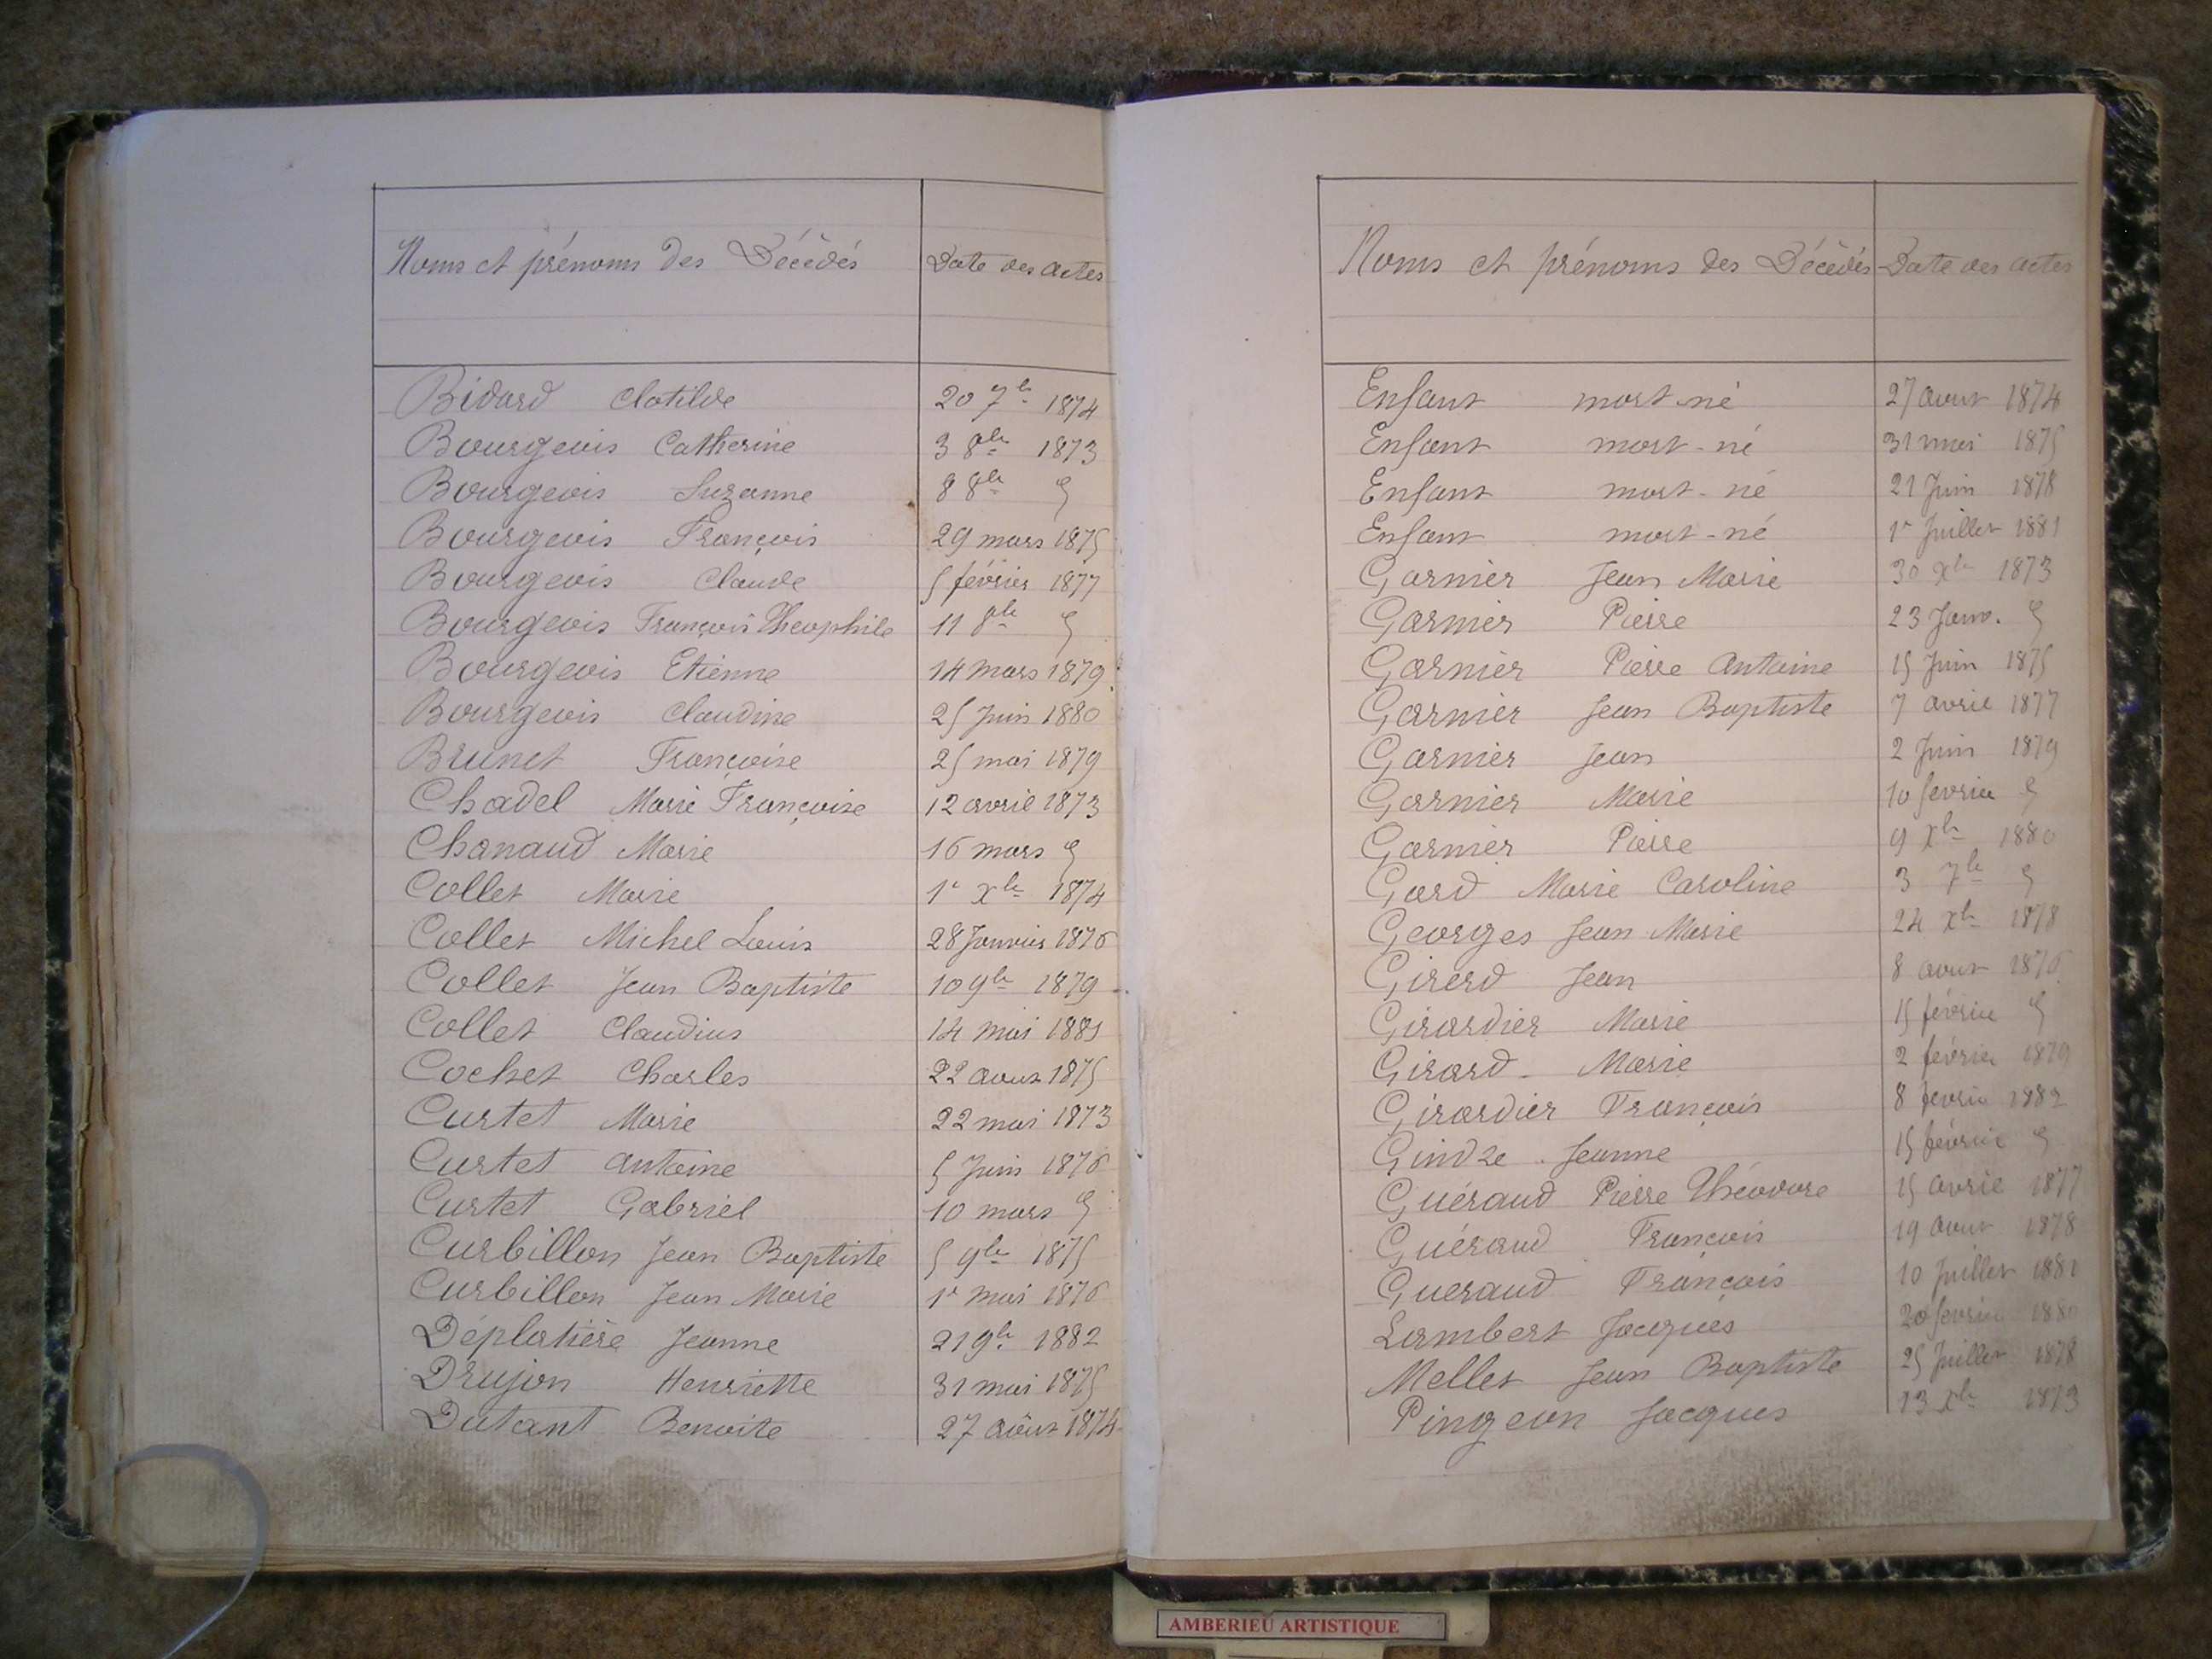 Noms et prénoms des Décédés Date des actes
Bidard Clotilde 20 7bre 1874
Bourgeois Catherine 3 8bre 1873
Bourgeois Suzanne 8 8bre
Bourgeois François 29 mars 1875
Bourgeois Claude 5 février 1877
Bourgeois François Théophile 11 8bre
Bourgeois Etienne 14 mars 1879
Bourgeois Claudine 25 Juin 1880
Brunet Françoise 25 mai 1879
Chadel Marie Françoise 12 avril 1873
Chanaud Marie 16 mars
Collet Marie 1er Xbre 1874
Collet Michel Louis 28 Janvier 1876
Collet Jean Baptiste 10 9bre 1879
Collet Claudius 14 mai 1881
Cochet Charles 22 aout 1875
Curtet Marie 22 mai 1873
Curtet Antoine 5 Juin 1876
Curtet Gabriel 10 mars
Curbillon Jean Baptiste 5 9bre 1875
Curbillon Jean Marie 1r mai 1876
Déplatière Jeanne 21 9bre 1882
Drujon Henriette 31 mai 1875
Dutant Benoite 27 août 1874
Noms et prénoms des Décédés Date des actes
Enfant mort-né 27 aout 1874
Enfant mort-né 31 mai 1875
Enfant mort-né 21 Juin 1878
Enfant mort-né 1r Juillet 1881
Garnier Jean Marie 30 Xbre 1873
Garnier Pierre 23 Janv.
Garnier Pierre Antoine 15 Juin 1875
Garnier Jean Baptiste 7 avril 1877
Garnier Jean 2 Juin 1879
Garnier Marie 10 fevrier
Garnier Pierre 9 Xbre 1880
Gard Marie Caroline 3 7bre
Georges Jean Marie 24 Xbre 1878
Girerd Jean 8 aout 1876
Girardier Marie 15 février
Girard Marie 2 février 1879
Girardier François 8 fevrier 1882
Gindre Jeanne 15 février
Guéraud Pierre Théodore 15 avril 1877
Guéraud François 19 aout 1878
Gueraud François 10 Juillet 1881
Lambert Jacques 20 fevrier 1880
Mellet Jean Baptiste 25 Juillet 1878
Pingeon Jacques 13 Xbre 1873
AMBERIEU ARTISTIQUE